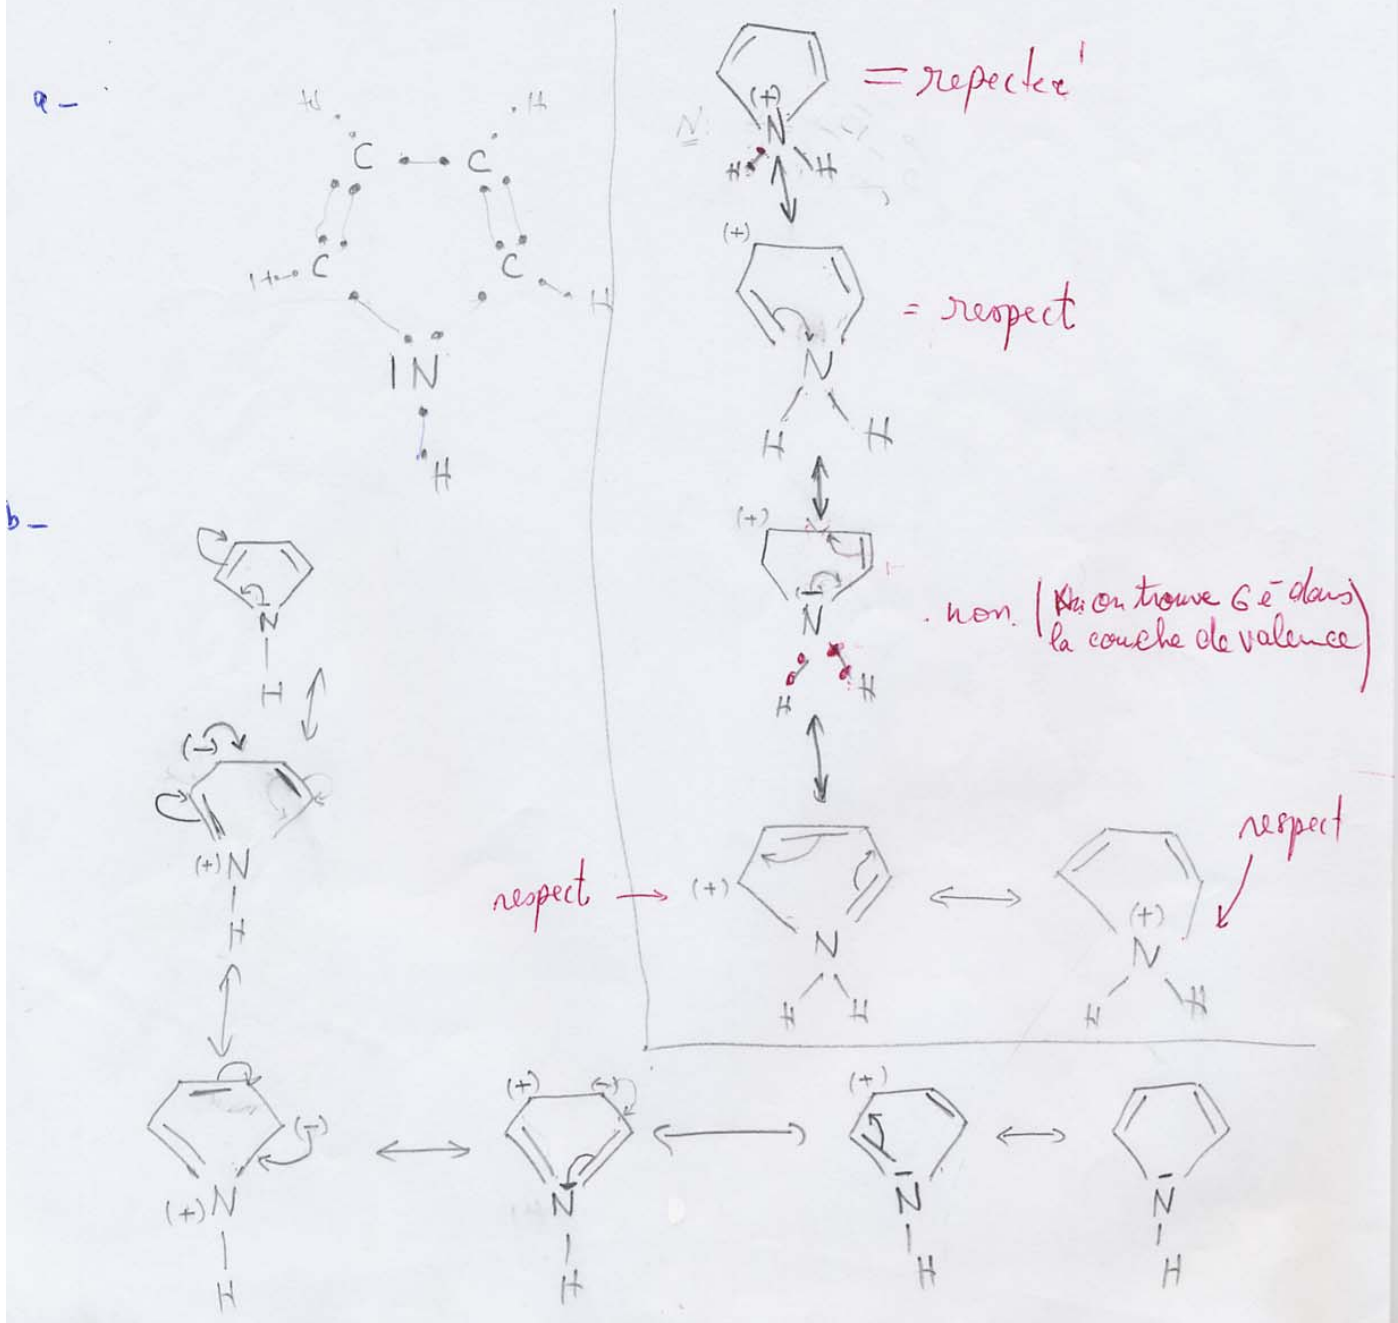 a -
H
H
C
C
H
C
C
H
IN
H
b -
N
H
(-)
(+) N
H
(-)
(+) N
H
(+)
(-)
N
H
(+)
N
H
N
H
(+)
N
H
H
= repecter
(+)
N
H
H
= respect
(+)
N
H
H
. non. ( on trouve 6 é dans
la couche de valence )
respect →
(+)
N
H
H
respect
(+)
N
H
H